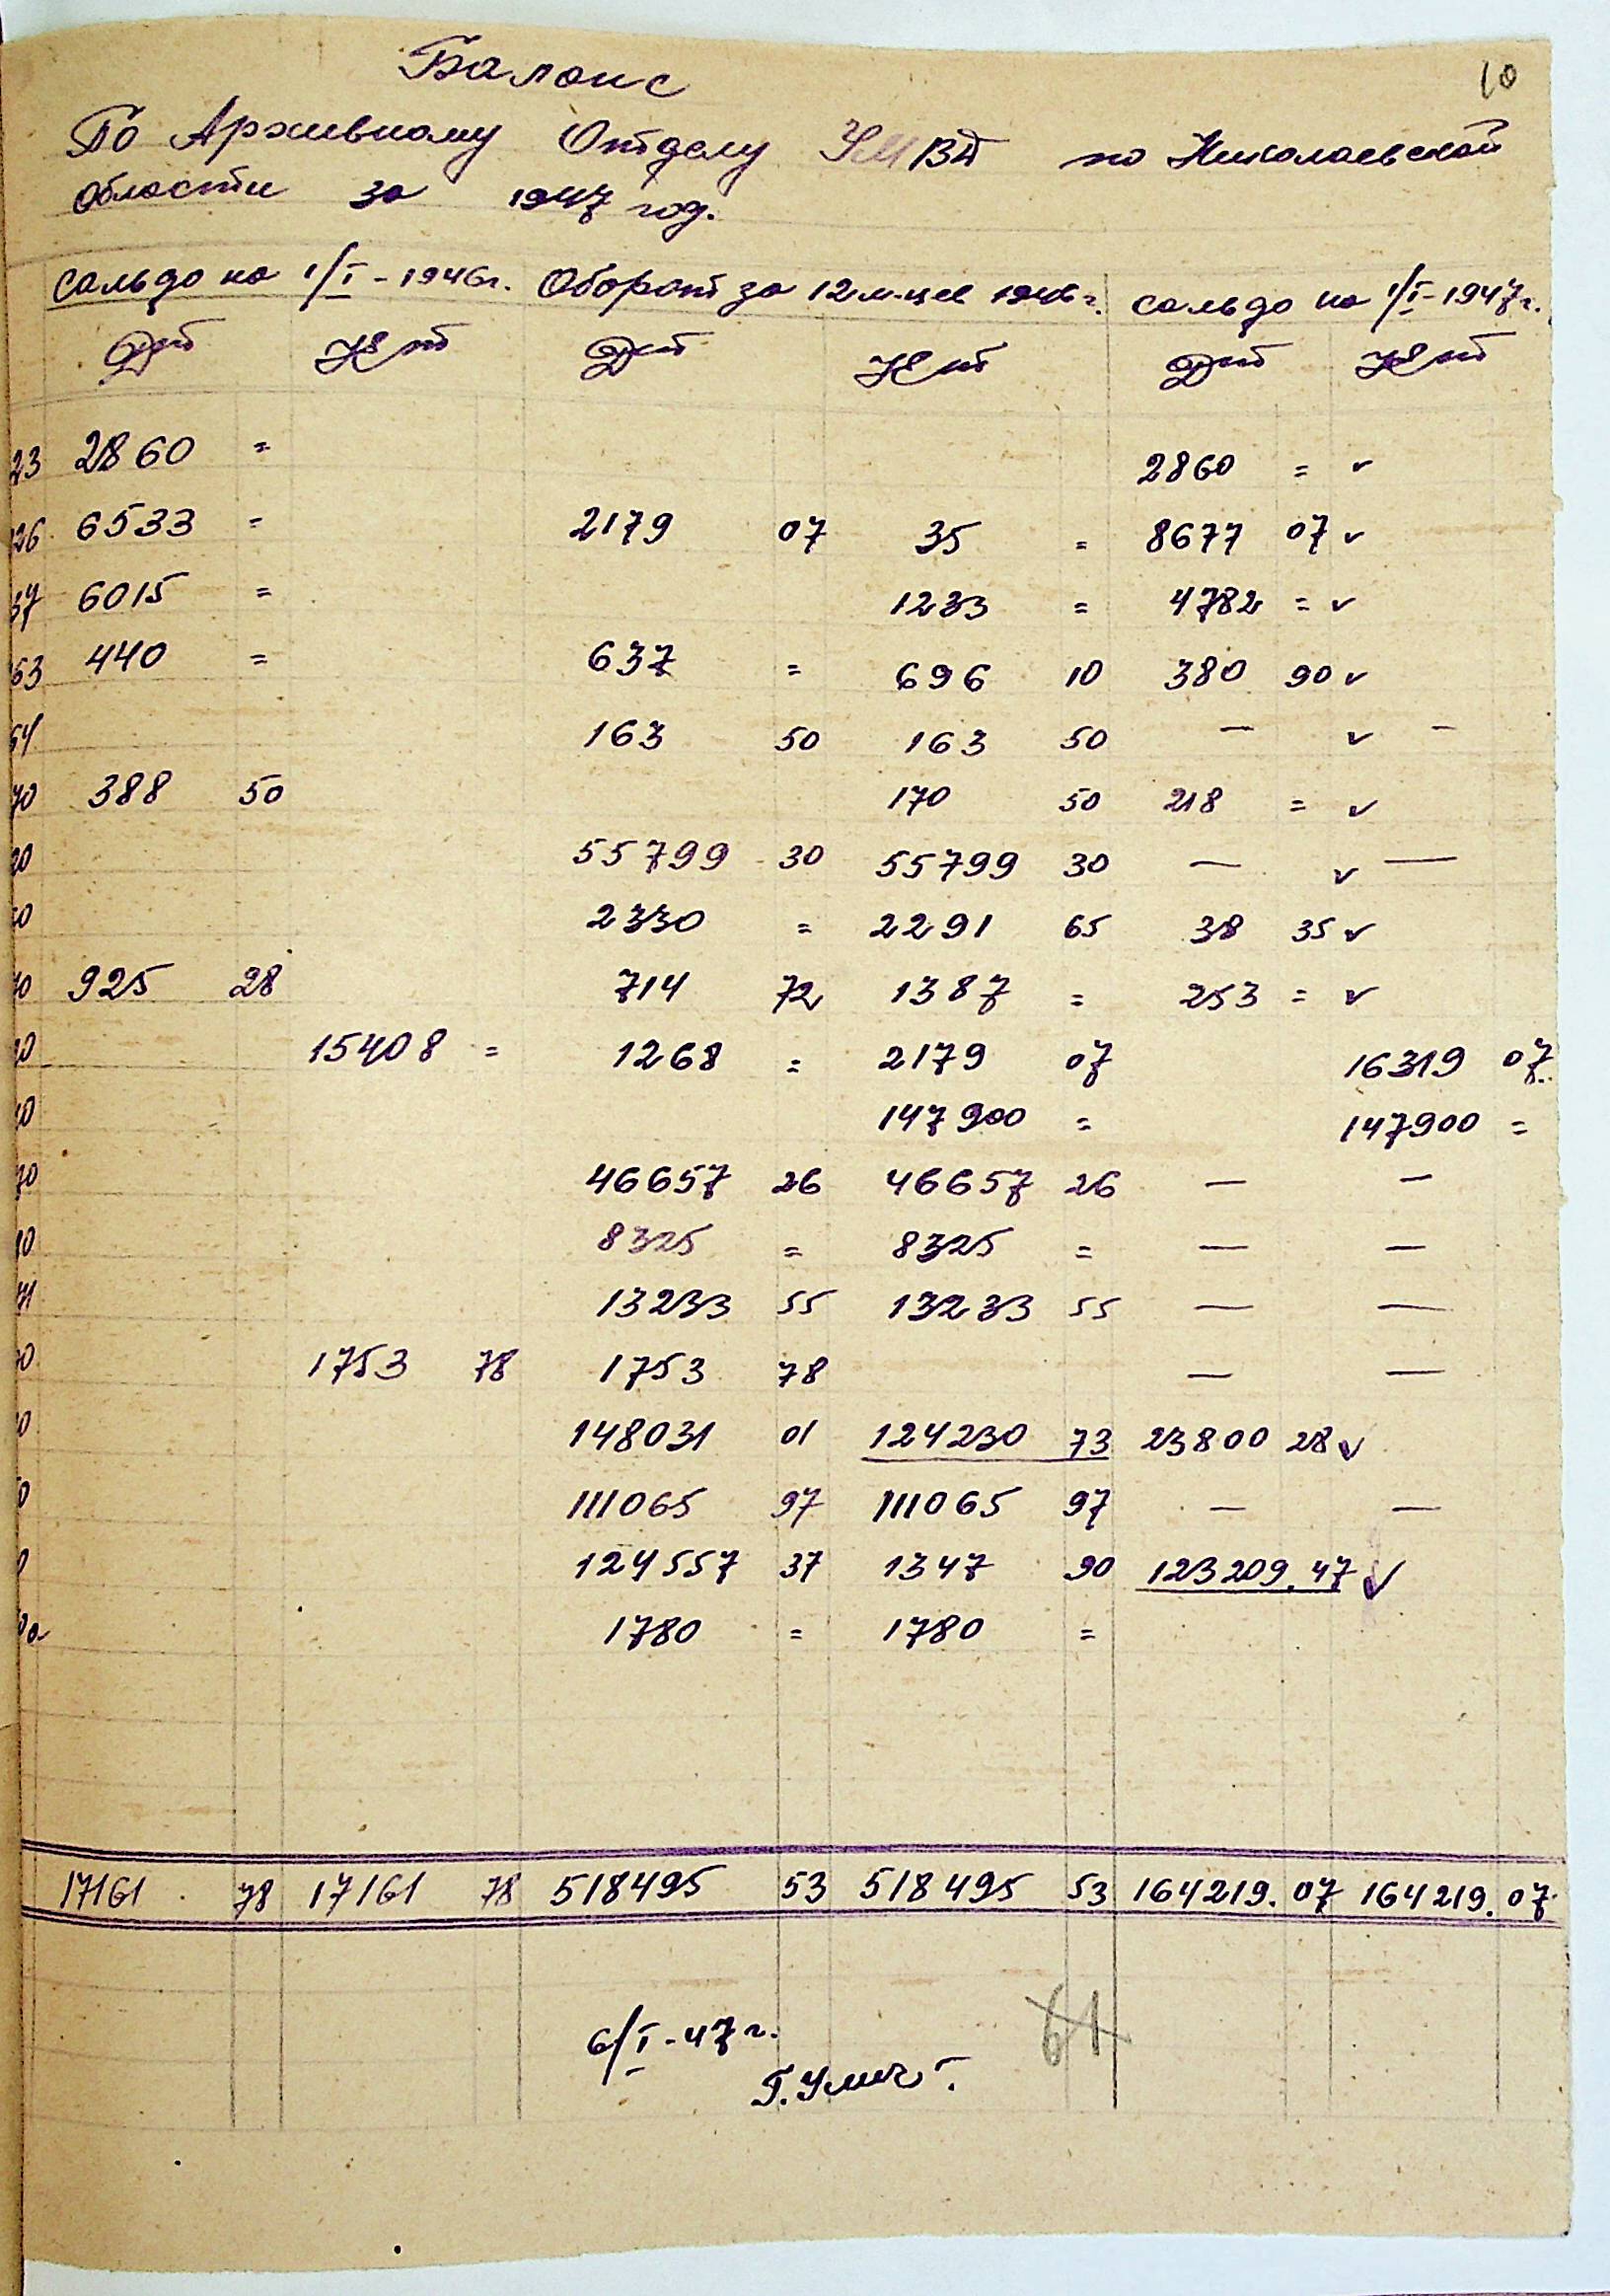 10
Баланс
По Архивному Отделу УМВД по Николаевской
области за 1947 год.
сальдо на 1/I-1946г. Оборот за 12 м-цев 1946г. сальдо на 1/I-1947г.
Дт Кт Дт Кт Дт Кт
23 2860 = 2860 = ✓
26 6533 = 2179 07 35 = 8677 07 ✓
37 6015 = 1233 = 4782 = ✓
63 440 = 637 = 696 10 380 90 ✓
64 163 50 163 50 — ✓ —
70 388 50 170 50 218 = ✓
20 55799 30 55799 30 — ✓ —
2330 = 2291 65 38 35 ✓
925 28 714 72 1387 = 253 = ✓
15408 = 1268 = 2179 07 16319 07
147900 = 147900 =
70 46657 26 46657 26 — —
8325 = 8325 = — —
71 13233 55 13233 55 — —
1753 78 1753 78 — —
148031 01 124230 73 23800 28 ✓
111065 97 111065 97 — —
124557 37 1347 90 123209.47 ✓
1780 = 1780 =
17161 78 17161 78 518495 53 518495 53 164219.07 164219.07
61
6/I-47г.